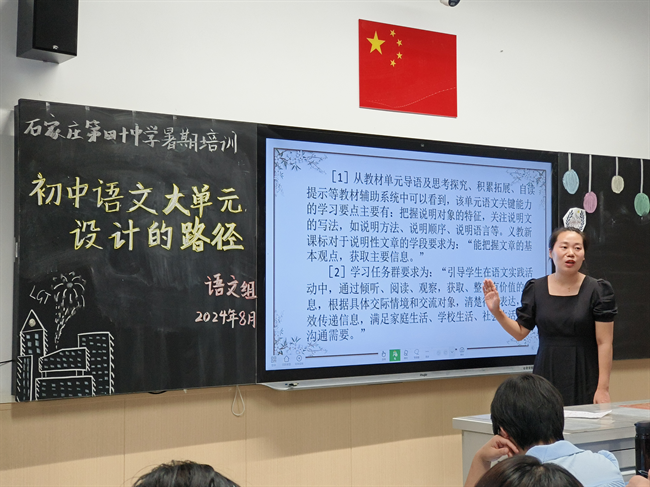 石家庄第四十中学暑期培训
初中语文大单元
设计的路径
语文组
2024年8月
LGT
[1] 从教材单元导语及思考探究、积累拓展、自读
提示等教材辅助系统中可以看到，该单元语文关键能力
的学习要点主要有：把握说明对象的特征，关注说明文
的写法，如说明方法、说明顺序、说明语言等。义教新
课标对于说明性文章的学段要求为：“能把握文章的基
本观点，获取主要信息。”
[2] 学习任务群要求为：“引导学生在语文实践活
动中，通过倾听、阅读、观察，获取、整
价值的信
息，根据具体交际情境和交流对象，清楚
表达，
效传递信息，满足家庭生活、学校生活、社
沟通需要。”